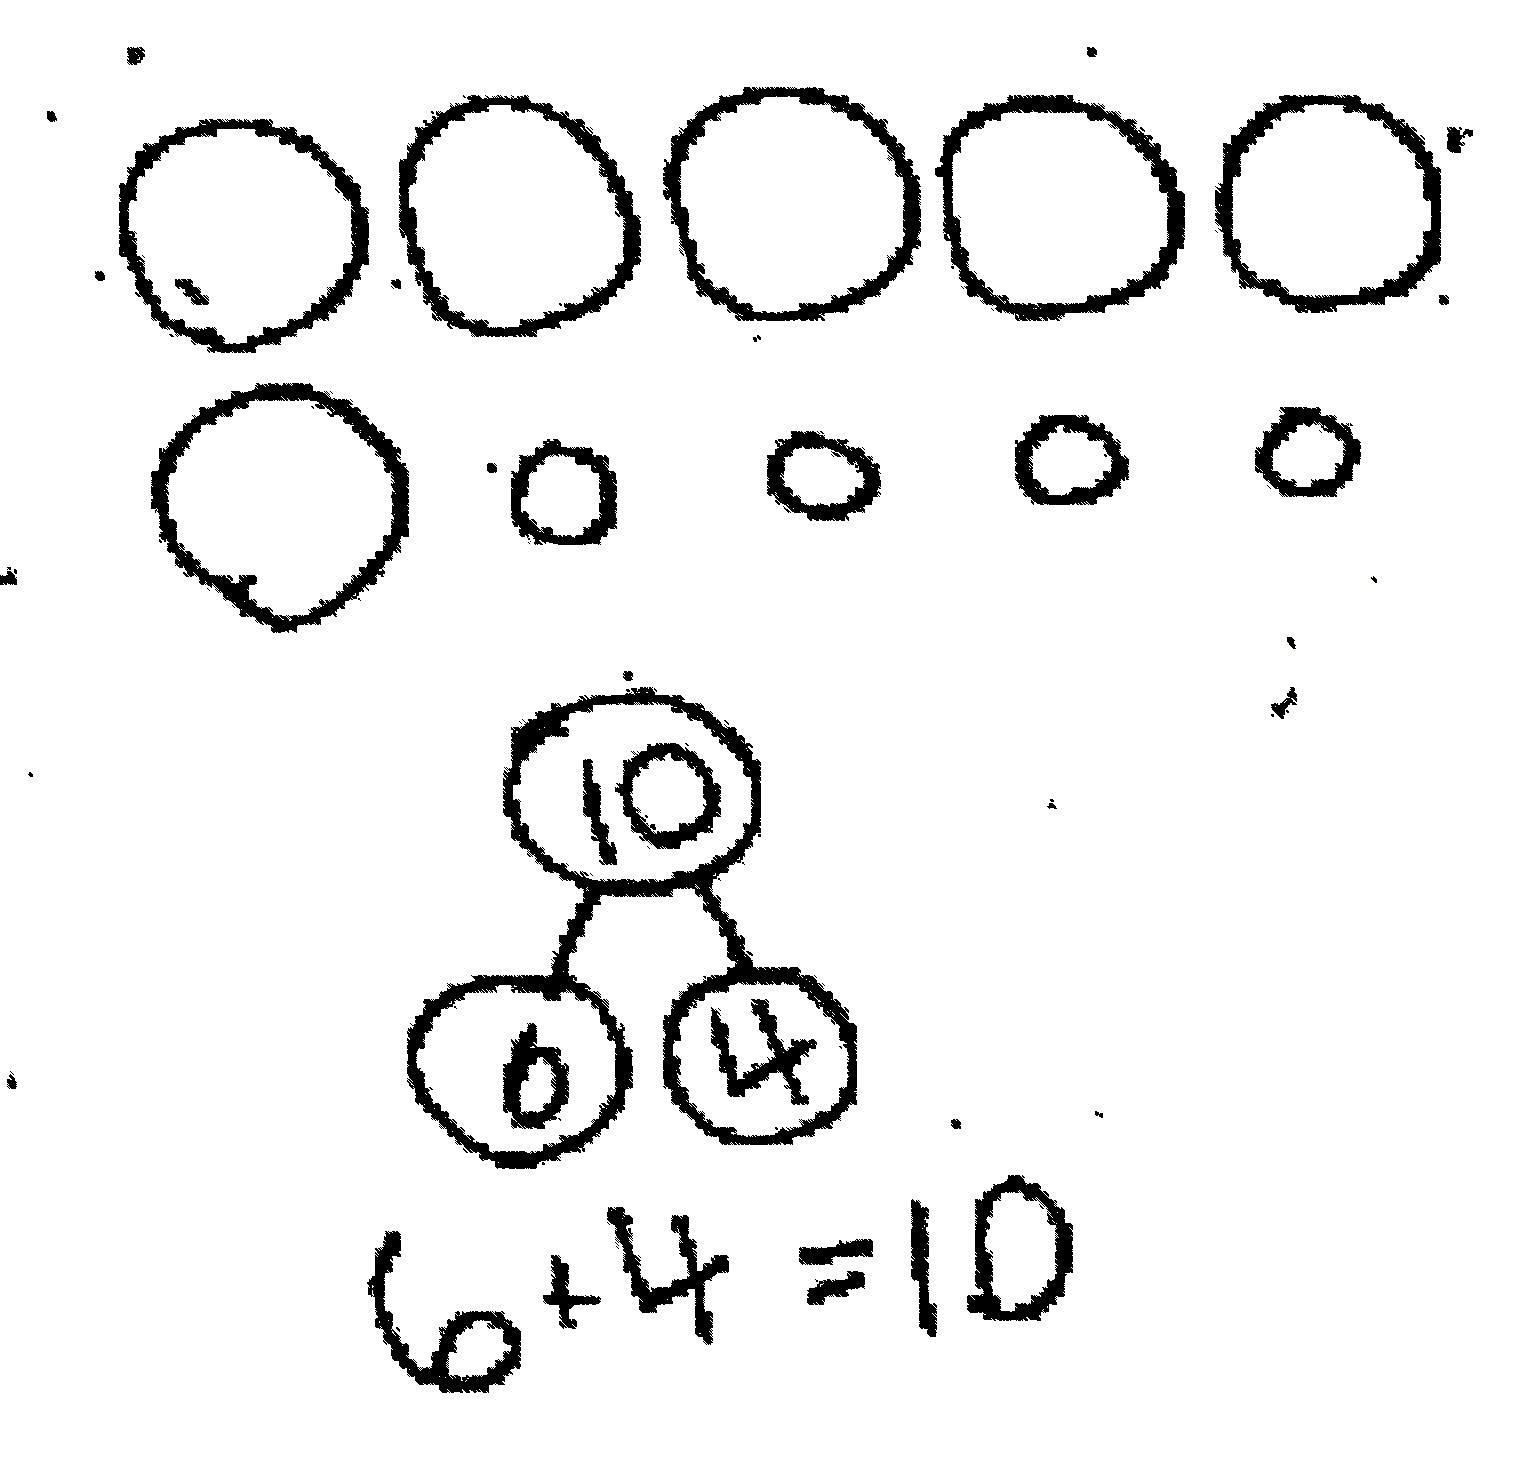 10
6 4
6+4=10